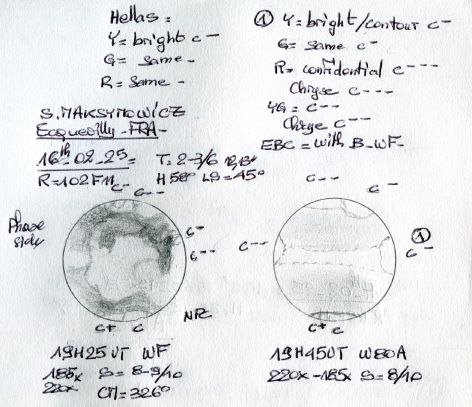 Hellas :
Y = bright c -
G = same -
R = same -
S. MAKSYMOWICZ
Ecquevilly - FRA -
16th - 02 - 25 =
R = 102 FM
T: 2-3/6
H 58° LS = 45°
① Y = bright/contour c -
G = same c -
R = confidential c - - -
Chryse c - - -
YG = c - -
Chryse c - -
EBC = with B - WF -
c - c - -
Phase side
c -
c - -
c+ c
NPC
19H25UT WF
185x S = 8-9/10
220x CM = 326°
c - -
c -
c - -
①
c -
c+ c
19H45UT W80A
220x - 185x S = 8/10